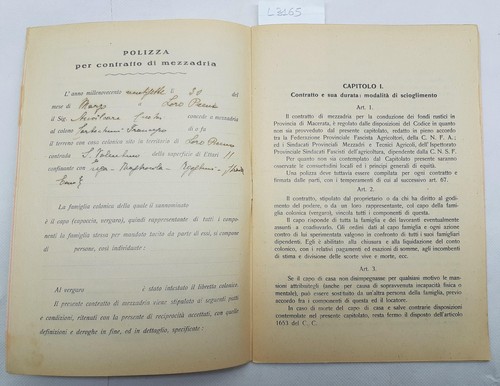 POLIZZA
per contratto di mezzadria
L'anno millenovecento ventisette il 20
del
mese di Marzo a Loro Piceno
il Sg concede a mezzadria
al colono e fa
il terreno con casa colonica sito in territorio di Loro Piceno
contrada S. Valentino della superficie di Ettari 11
confinante con
La famiglia colonica della quale il summenzionato
è il capo (capoccia, vergaro), quindi rappresentante di tutti i componenti la famiglia stessa per mandato tacito da parte di essi, si compone
di persone, così individuate:
Al vergaro è stato intestato il libretto colonico.
Il presente contratto di mezzadria viene stipulato ai seguenti patti
e condizioni, ritenuti con la presente di reciprocità accettati, con quelle
definizioni e deroghe in fine, ed in dettaglio, specificate:
L2165
CAPITOLO I.
Contratto e sua durata: modalità di scioglimento
Art. 1.
Il contratto di mezzadria per la conduzione dei fondi rustici in
Provincia di Macerata, è regolato dalle disposizioni del Codice in quanto
non sia provveduto dal presente capitolato, redatto in pieno accordo
tra la Federazione Provinciale Fascista Agricoltori, della C. N. F. A.;
ed i Sindacati Provinciali Mezzadri e Tecnici Agricoli, dell'Ispettorato
Provinciale Sindacati Fascisti dell'agricoltura, dipendente dalla C. N. S. F.
Per quanto non sia contemplato dal Capitolato presente saranno
osservate le consuetudini locali ed i principî generali di equità.
Una polizza deve tuttavia essere compilata per ogni contratto e
firmata dalle parti, con i temperamenti di cui al successivo art. 67.
Art. 2.
Il contratto, stipulato dal proprietario o da chi ha diritto al godimento
del podere, o da un loro rappresentante, col capo della famiglia
colonica (vergaro), vincola tutti i componenti di questa.
Il capo risponde di tutta la famiglia e dei lavoranti eventualmente
assunti a coadiuvarlo. Gli ordini dati al capo famiglia e ogni azione
contro di lui sperimentata valgono in confronto di tutti i suoi famigliari
dipendenti. Egli è abilitato alla chiusura e alla liquidazione del conto
colonico, con i relativi pagamenti ed esazioni di somme, agli incombenti di
stima e divisione delle scorte vive e morte, ecc.
Art. 3.
Se il capo di casa non disimpegnasse per qualsiasi motivo le mansioni
attribuitegli (anche per causa di sopravvenuta incapacità fisica o
mentale), può essere sostituito da un'altra persona della famiglia, previo
accordo fra i componenti di questa ed il locatore.
In caso di morte del capo di casa e salve contrarie disposizioni
contemplate nel presente capitolato, resta fermo il disposto dell'articolo
1653 del C. C.